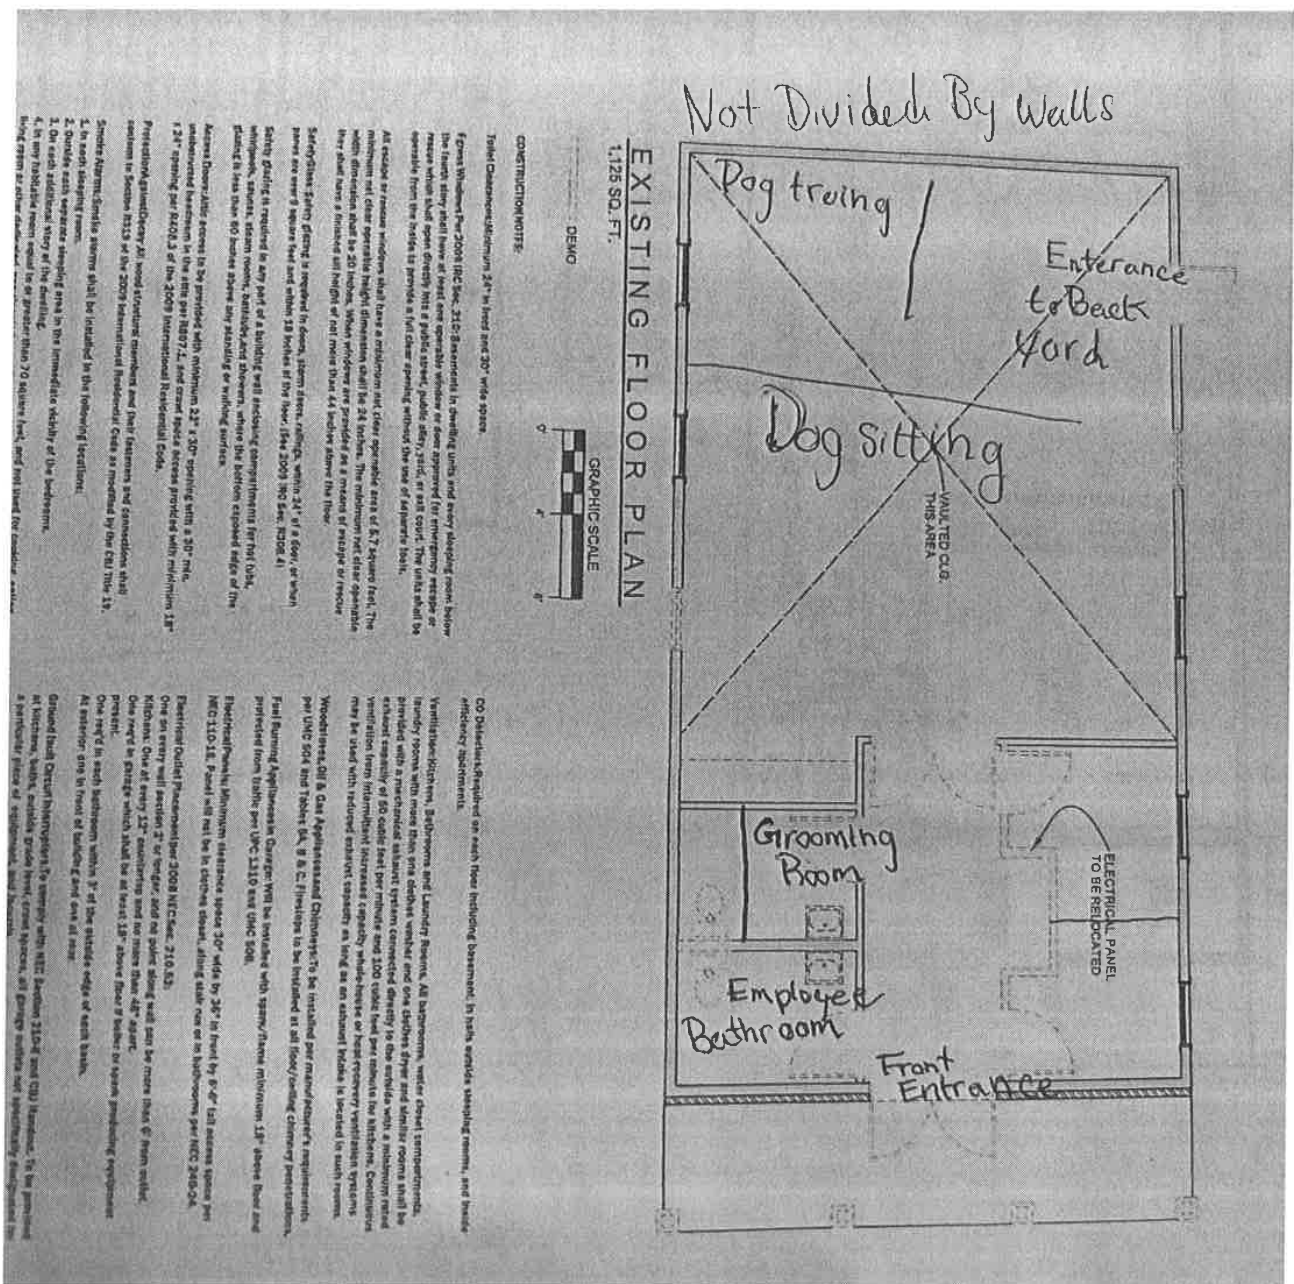 Not Divided By Walls
Dog truing
Enterance
to Back
Yard
Dog sitting
VAULTED CLG.
THIS AREA
Grooming
Room
ELECTRICAL PANEL
TO BE RELOCATED
Employee
Bathroom
Front
Entrance
EXISTING FLOOR PLAN
1,125 SQ. FT.
GRAPHIC SCALE
0'
4'
8'
DEMO
CONSTRUCTION NOTES:
Toilet Clearances: Minimum 24" in front and 30" wide space.
Egress Windows: Per 2009 IRC Sec. 310: Basements in dwelling units and every sleeping room below
the fourth story shall have at least one operable window or door approved for emergency escape or
rescue which shall open directly into a public street, public alley, yard, or exit court. The units shall be
operable from the inside to provide a full clear opening without the use of separate tools.
All escape or rescue windows shall have a minimum net clear openable area of 5.7 square feet. The
minimum net clear openable height dimension shall be 24 inches. The minimum net clear openable
width dimension shall be 20 inches. When windows are provided as a means of escape or rescue
they shall have a finished sill height of not more than 44 inches above the floor.
Safety Glass: Safety glazing is required in doors, storm doors, railings, within 24" of a door, or when
panes are over 9 square feet and within 18 inches of the floor. (See 2009 IRC Sec. R308.4)
Safety glazing is required in any part of a building wall enclosing compartments for hot tubs,
whirlpools, saunas, steam rooms, bathtubs, and showers, where the bottom exposed edge of the
glazing is less than 60 inches above any standing or walking surface.
Access Doors: Attic access to be provided with minimum 22" x 30" opening with a 30" min.
unobstructed headroom in the attic per R807.1, and crawl space access provided with minimum 18"
x 24" opening per R408.3 of the 2009 International Residential Code.
Protection Against Decay: All wood structural members and their fasteners and connections shall
conform to Section R319 of the 2009 International Residential Code as modified by the CBJ Title 19.
Smoke Alarms: Smoke alarms shall be installed in the following locations:
1. In each sleeping room.
2. Outside each separate sleeping area in the immediate vicinity of the bedrooms.
3. On each additional story of the dwelling.
4. In any habitable room equal to or greater than 70 square feet, and not used for cooking, eating
CO Detectors: Required on each floor including basement, in halls outside sleeping rooms, and inside
efficiency apartments.
Ventilation: Kitchens, Bathrooms and Laundry Rooms. All bathrooms, water closet compartments,
laundry rooms with more than one clothes washer and one clothes dryer and similar rooms shall be
provided with a mechanical exhaust system connected directly to the outside with a minimum rated
exhaust capacity of 50 cubic feet per minute and 100 cubic feet per minute for kitchens. Continuous
ventilation from intermittent increases capacity whole-house or heat-recovery ventilation systems
may be used with reduced exhaust capacity as long as an exhaust intake is located in such rooms.
Woodstoves, Oil & Gas Appliances and Chimneys: To be installed per manufacturer's requirements
per UMC 504 and Tables 8A, B & C. Firestops to be installed at all floor/ceiling chimney penetrations.
Fuel Burning Appliances in Garage: Will be installed with spark/flame minimum 18" above floor and
protected from traffic per UPC 1310 and UMC 508.
Electrical Panels: Minimum clearance space 30" wide by 36" in front by 6'-6" tall access space per
NEC 110-16. Panel will not be in clothes closet, along stair run or in bathrooms per NEC 240-24.
Electrical Outlet Placement (per 2008 NEC Sec. 210.52:
One on every wall section 2' or longer, and no point along wall can be more than 6' from outlet.
Kitchens: One at every 12" countertop and no more than 48" apart.
One req'd in garage which shall be at least 18" above floor if boiler or spark producing equipment
present.
One req'd in each bathroom within 3' of the outside edge of each basin.
At exterior one in front of building and one at rear.
Ground Fault Circuit Interrupters: To comply with NEC Section 210-8 and CBJ Handout. To be provided
at kitchens, baths, outside grade level, crawl spaces, all garage outlets not specifically designated for
a particular piece of equipment, and